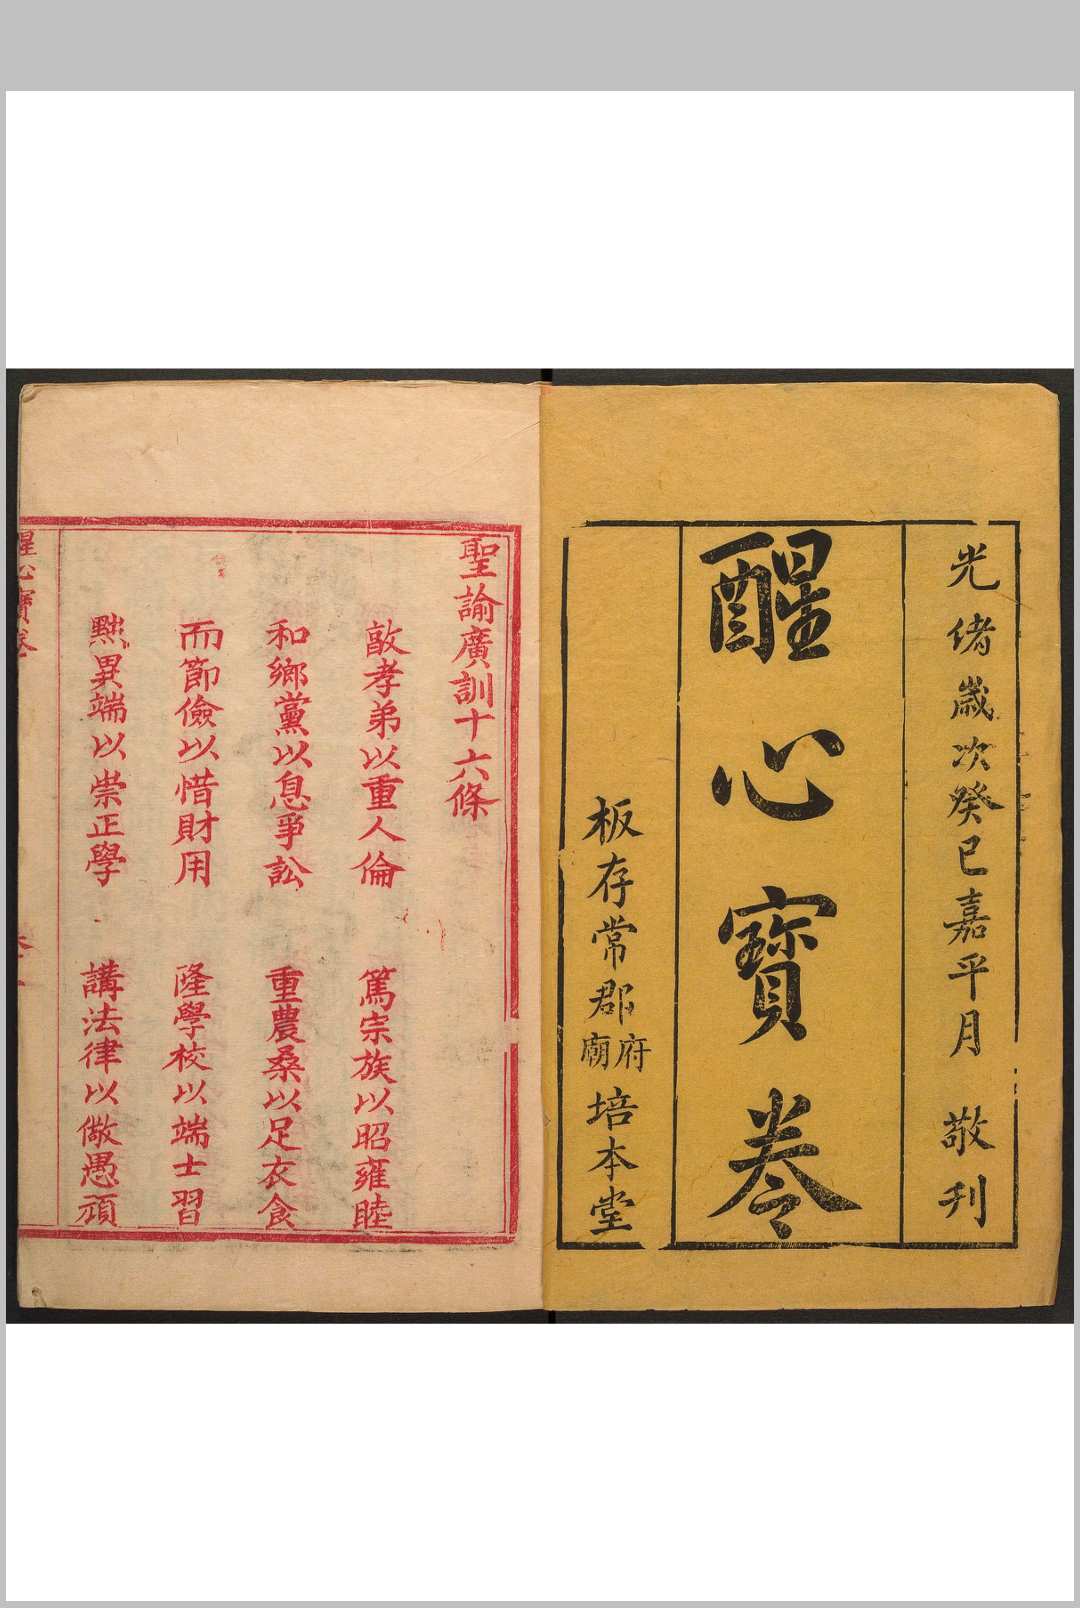 光緒歲次癸巳嘉平月 敬刊
醒心寳卷
板存常郡府廟培本堂
聖諭廣訓十六條
敦孝弟以重人倫 篤宗族以昭雍睦
和鄉黨以息爭訟 重農桑以足衣食
而節儉以惜財用 隆學校以端士習
黜異端以崇正學 講法律以儆愚頑
醒心寳卷